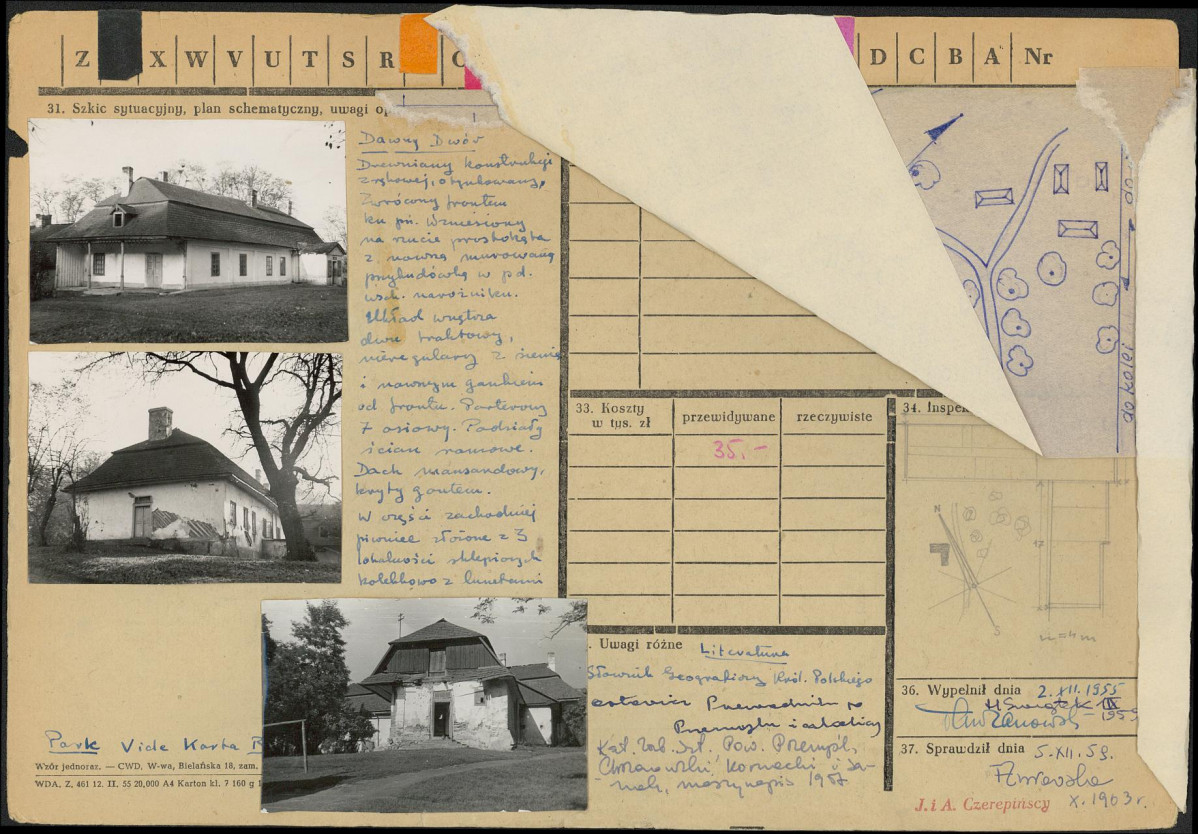 Z X W V U T S R D C B A Nr
31. Szkic sytuacyjny, plan schematyczny, uwagi op
Dawny Dwór
Drewniany konstrukcji
zrębowej, otynkowany,
Zwrócony frontem
ku pn. Wzniesiony
na rzucie prostokąta
z nowszą murowaną
przybudówką w pd.
wsch. narożniku.
Układ wnętrza
dwu traktowy,
nieregularny z sienią
i nowszym gankiem
od frontu. Parterowy
7 osiowy. Podziały
ścian ramowe.
Dach mansardowy,
kryty gontem.
W części zachodniej
piwnice złożone z 3
lokalności sklepionych
kolebkowo z lunetami
Park Vide Karta
Wzór jednoraz. — CWD, W-wa, Bielańska 18, zam.
WDA. Z, 461 12. II. 55 20,000 A4 Karton kl. 7 160 g
33. Koszty
w tys. zł
przewidywane
rzeczywiste
35.-
Uwagi różne
Literatura
Słownik Geograficzny Król. Polskiego
Przewodnik
Przemyślu i okolicy
Kat. Zab. Szt. Pow. Przemyśl,
Chrzanowski, Kornecki i Sa-
mek, maszynopis 1957
do kolei
34. Inspek
N
S
17
36. Wypełnił dnia 2.XII.1955
37. Sprawdził dnia 5.XII.59.
J. i A. Czerepińscy X.1963 r.